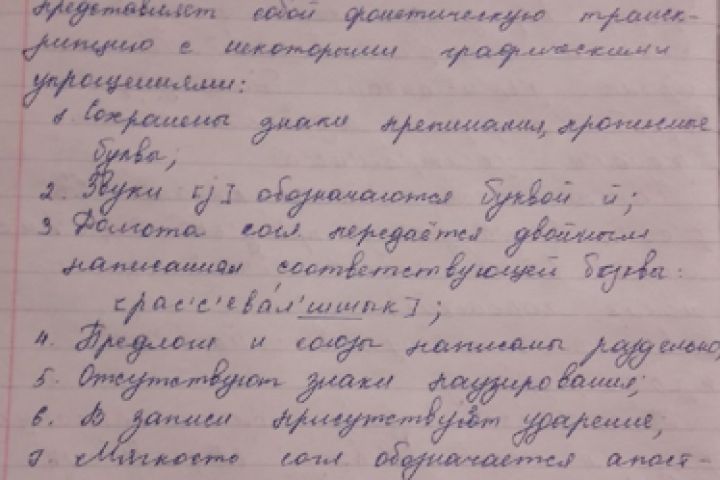 представляет собой фонетическую транск-
рипцию с некоторыми графическими
упрощениями:
1. Сохранены знаки препинания, прописные
буквы;
2. Звуки [j] обозначаются буквой й;
3. Долгота согл. передаётся двойным
написанием соответствующей буквы:
[рас'с'ева́л'шшык];
4. Предлоги и союзы написаны раздельно,
5. Отсутствуют знаки паузирования;
6. В записи присутствует ударение;
7. Мягкость согл обозначается апост-